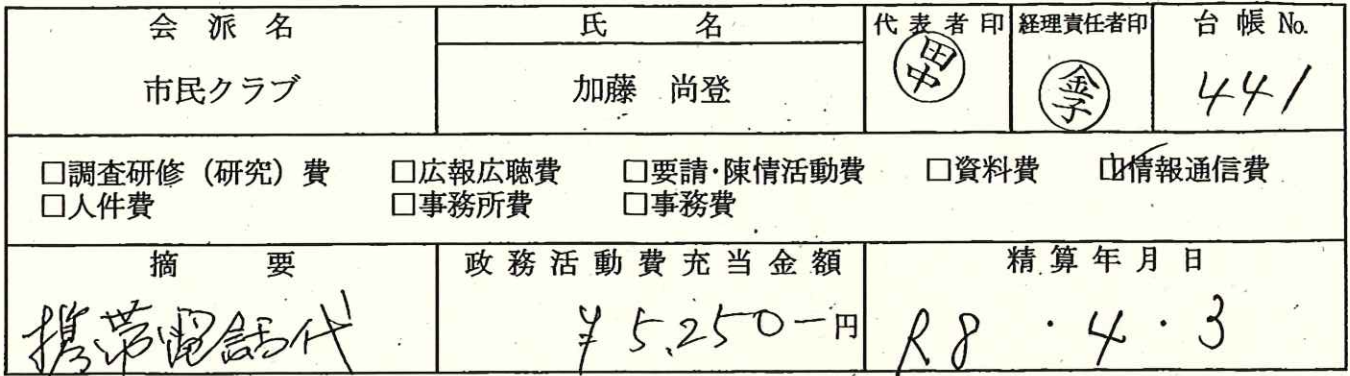 会派名 氏名 代表者印 経理責任者印 台帳 No.
市民クラブ 加藤 尚登 田中 金子 441
□調査研修（研究）費 □広報広聴費 □要請・陳情活動費 □資料費 ☑情報通信費
□人件費 □事務所費 □事務費
摘要 政務活動費充当金額 精算年月日
携帯電話代 ¥5,250-円 R8・4・3